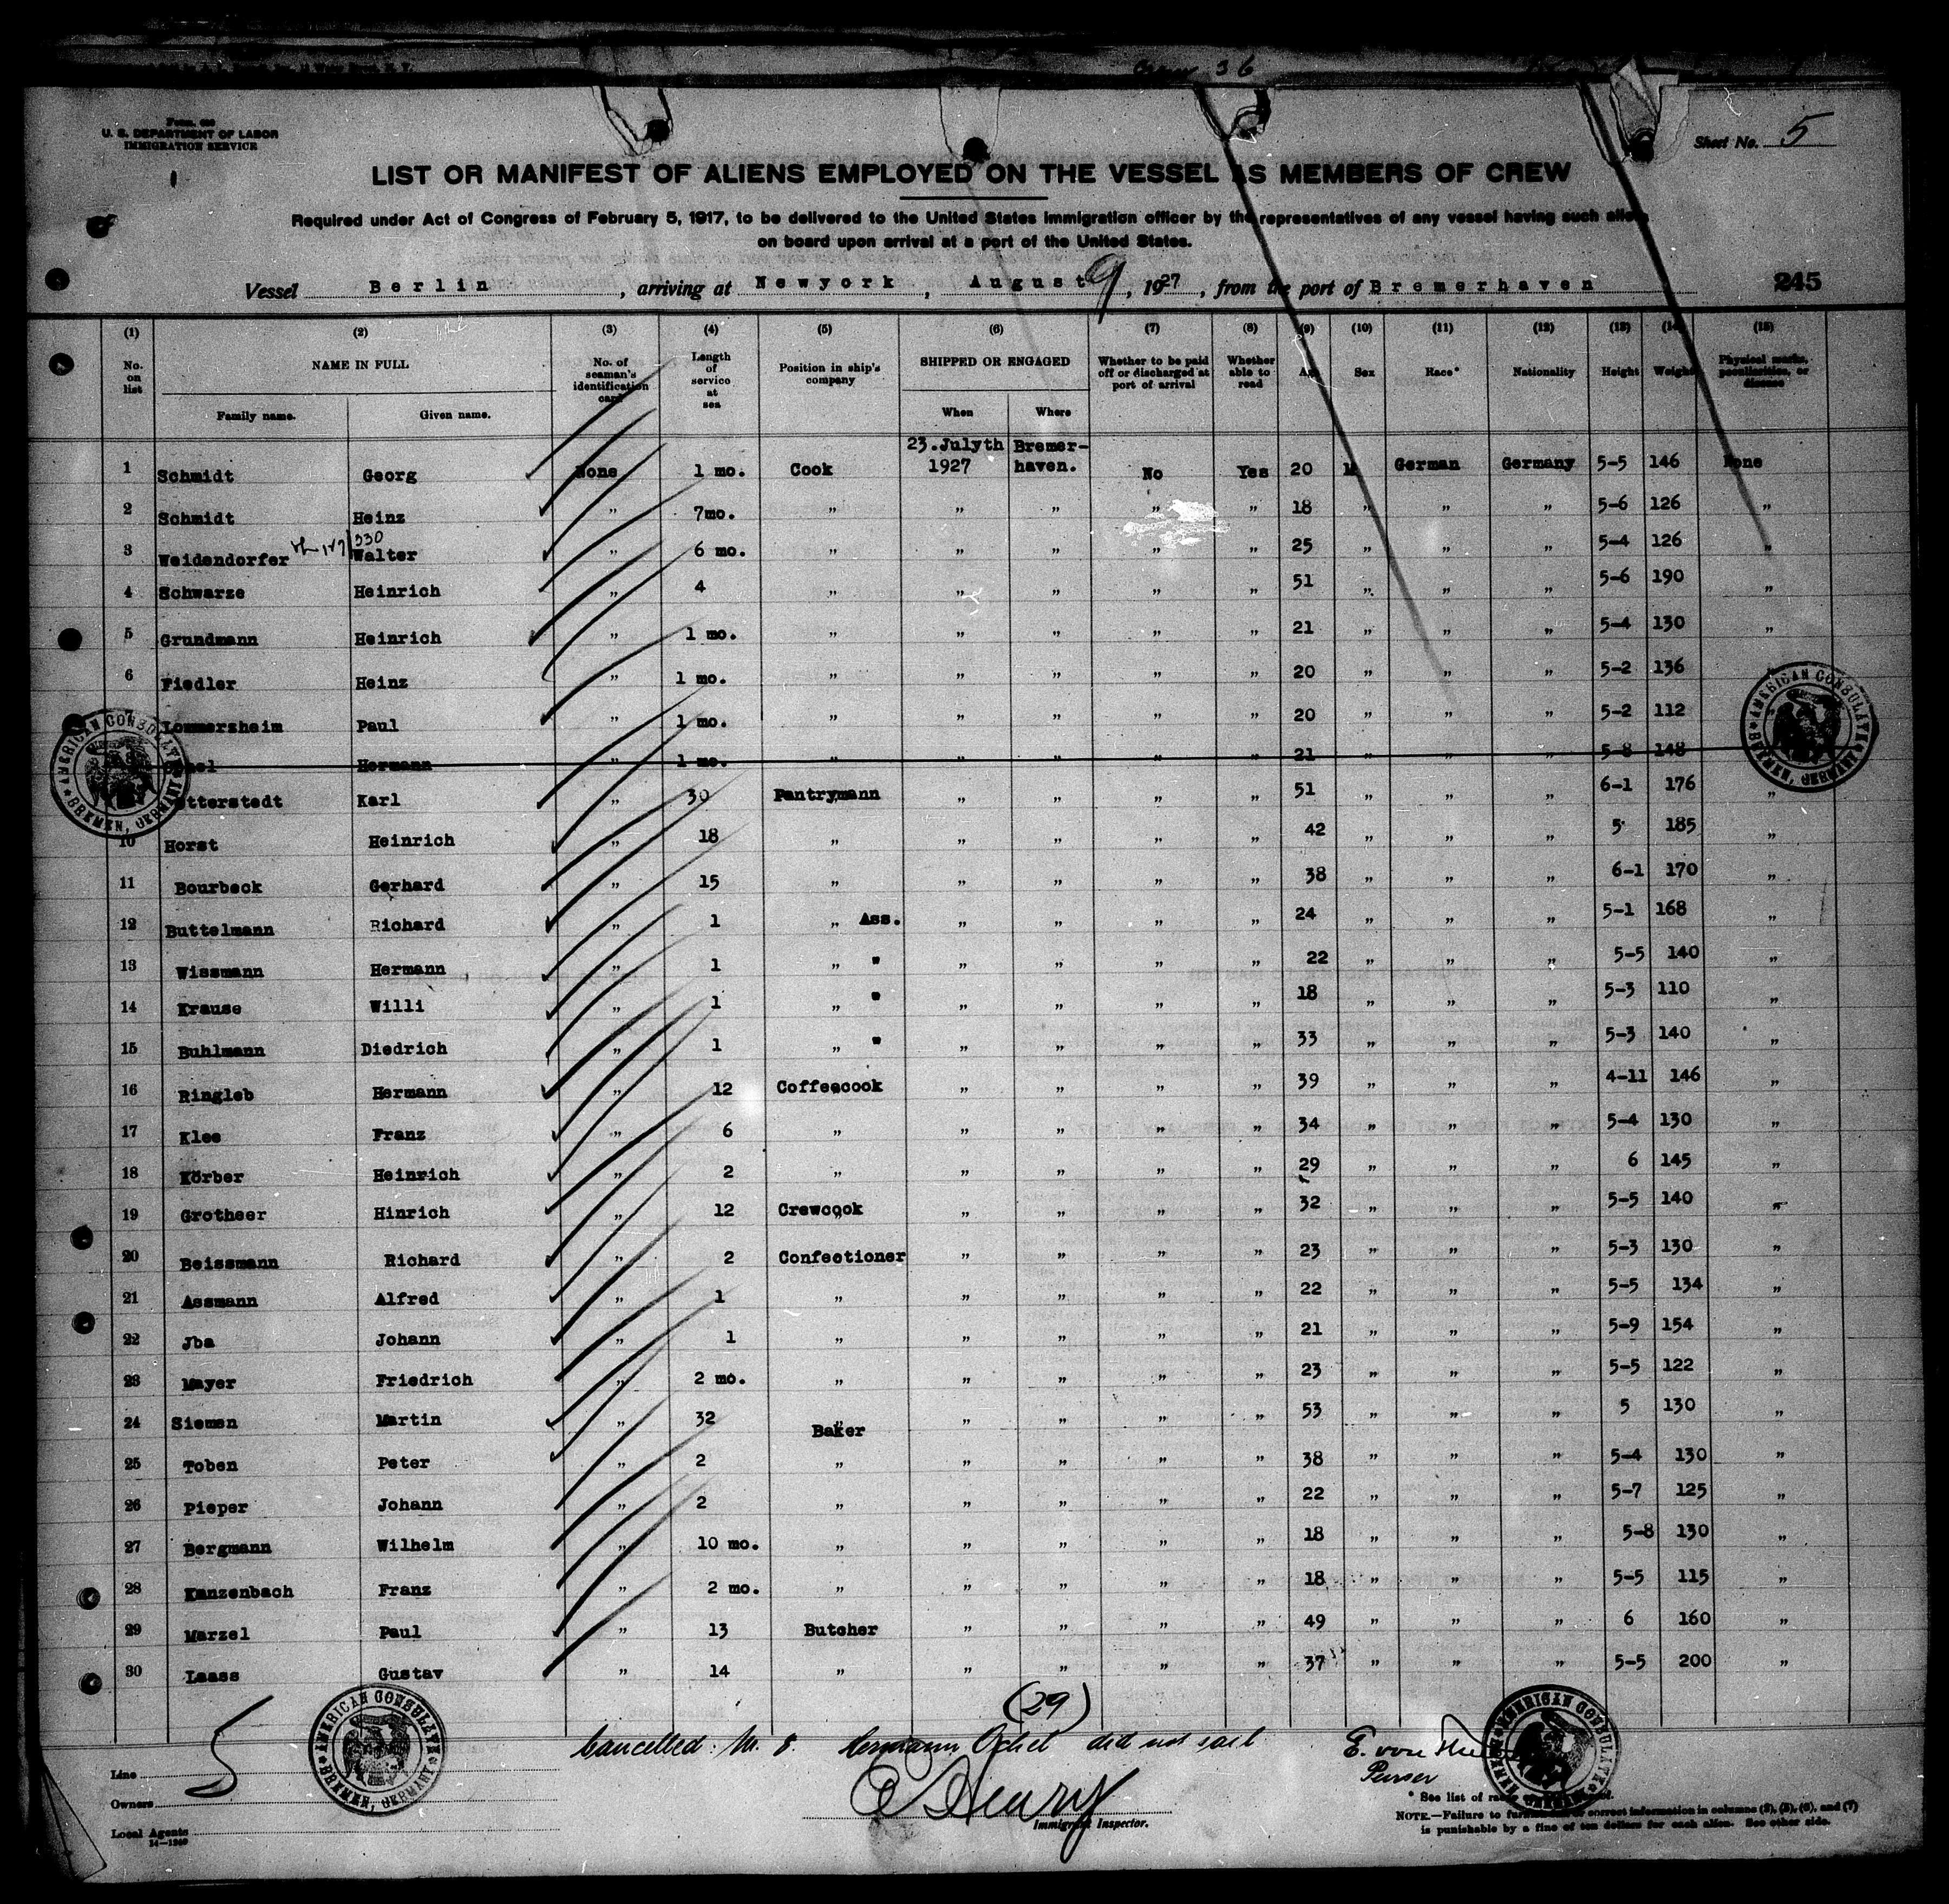 U. S. DEPARTMENT OF LABOR
IMMIGRATION SERVICE
Sheet No. 5
LIST OR MANIFEST OF ALIENS EMPLOYED ON THE VESSEL AS MEMBERS OF CREW
Required under Act of Congress of February 5, 1917, to be delivered to the United States immigration officer by the representatives of any vessel having such aliens
on board upon arrival at a port of the United States.
Vessel Berlin, arriving at Newyork, August 9, 1927, from the port of Bremerhaven 245
(1) (2) (3) (4) (5) (6) (7) (8) (9) (10) (11) (12) (13) (14) (15)
No. on list NAME IN FULL No. of seaman's identification card Length of service at sea Position in ship's company SHIPPED OR ENGAGED Whether to be paid off or discharged at port of arrival Whether able to read Age Sex Race* Nationality Height Weight Physical marks, peculiarities, or disease
Family name. Given name. When Where
1 Schmidt Georg None 1 mo. Cook 23.Julyth 1927 Bremer-haven. No Yes 20 M German Germany 5-5 146 None
2 Schmidt Heinz " 7mo. " " " " " 18 " " " 5-6 126 "
3 Weidendorfer Walter " 6 mo. " " " " " 25 " " " 5-4 126 "
4 Schwarze Heinrich " 4 " " " " " 51 " " " 5-6 190 "
5 Grundmann Heinrich " 1 mo. " " " " " 21 " " " 5-4 130 "
6 Fiedler Heinz " 1 mo. " " " " " 20 " " " 5-2 136 "
7 Lommersheim Paul " 1 mo. " " " " " 20 " " " 5-2 112
Hermann " 1 mo. " " " " " 21 " " " 5-8 148
Karl " 30 Pantrymann " " " " 51 " " " 6-1 176 "
10 Horst Heinrich " 18 " " " " " 42 " " " 5 185 "
11 Bourbeck Gerhard " 15 " " " " " 38 " " " 6-1 170 "
12 Buttelmann Richard " 1 " Ass. " " " " 24 " " " 5-1 168 "
13 Wissmann Hermann " 1 " " " " " " 22 " " " 5-5 140 "
14 Krause Willi " 1 " " " " " " 18 " " " 5-3 110 "
15 Buhlmann Diedrich " 1 " " " " " " 33 " " " 5-3 140 "
16 Ringleb Hermann " 12 Coffeecook " " " " 39 " " " 4-11 146 "
17 Klee Franz " 6 " " " " " 34 " " " 5-4 130 "
18 Körber Heinrich " 2 " " " " " 29 " " " 6 145 "
19 Grotheer Hinrich " 12 Crewcook " " " " 32 " " " 5-5 140 "
20 Beissmann Richard " 2 Confectioner " " " " 23 " " " 5-3 130 "
21 Assmann Alfred " 1 " " " " " 22 " " " 5-5 134 "
22 Jba Johann " 1 " " " " " 21 " " " 5-9 154 "
23 Mayer Friedrich " 2 mo. " " " " " 23 " " " 5-5 122 "
24 Siemen Martin " 32 Baker " " " " 53 " " " 5 130 "
25 Toben Peter " 2 " " " " " 38 " " " 5-4 130 "
26 Pieper Johann " 2 " " " " " 22 " " " 5-7 125 "
27 Bergmann Wilhelm " 10 mo. " " " " " 18 " " " 5-8 130 "
28 Kanzenbach Franz " 2 mo. " " " " " 18 " " " 5-5 115 "
29 Marzel Paul " 13 Butcher " " " " 49 " " " 6 160 "
30 Laass Gustav " 14 " " " " " 37 " " " 5-5 200 "
AMERICAN CONSULATE
BREMEN, GERMANY
(29)
Cancelled: N. 8. Hermann Ochel did not sail
E. von
Purser
5
Line
Owners
Local Agents
14-1240
Immigrant Inspector.
* See list of races
NOTE.—Failure to furnish or correct information in columns (2), (5), (6), and (7)
is punishable by a fine of ten dollars for each alien. See other side.